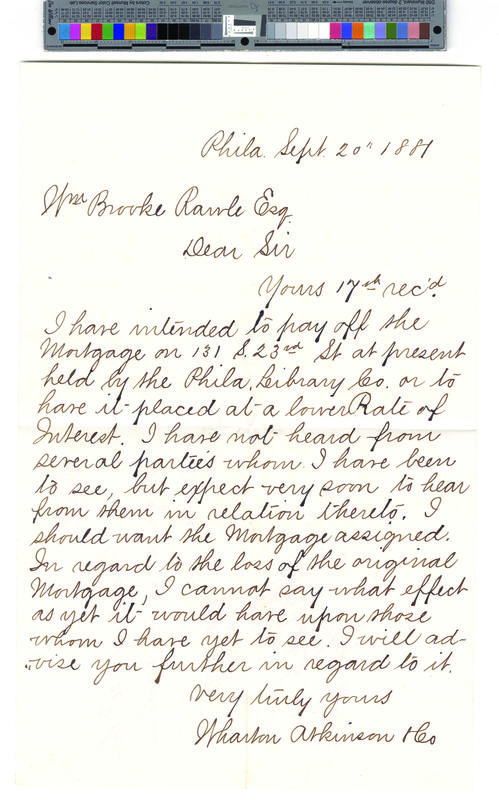 Phila. Sept. 20" 1881
Wm Brooke Rawle Esq.
Dear Sir
Yours 17th rec'd.
I have intended to pay off the
Mortgage on 131 S. 23rd St at present
held by the Phila. Library Co. or to
have it placed at a lower Rate of
Interest. I have not heard from
several parties whom I have been
to see, but expect very soon to hear
from them in relation thereto. I
should want the Mortgage assigned.
In regard to the loss of the original
Mortgage, I cannot say what effect
as yet it would have upon those
whom I have yet to see. I will ad-
vise you further in regard to it.
Very truly yours
Wharton Atkinson & Co